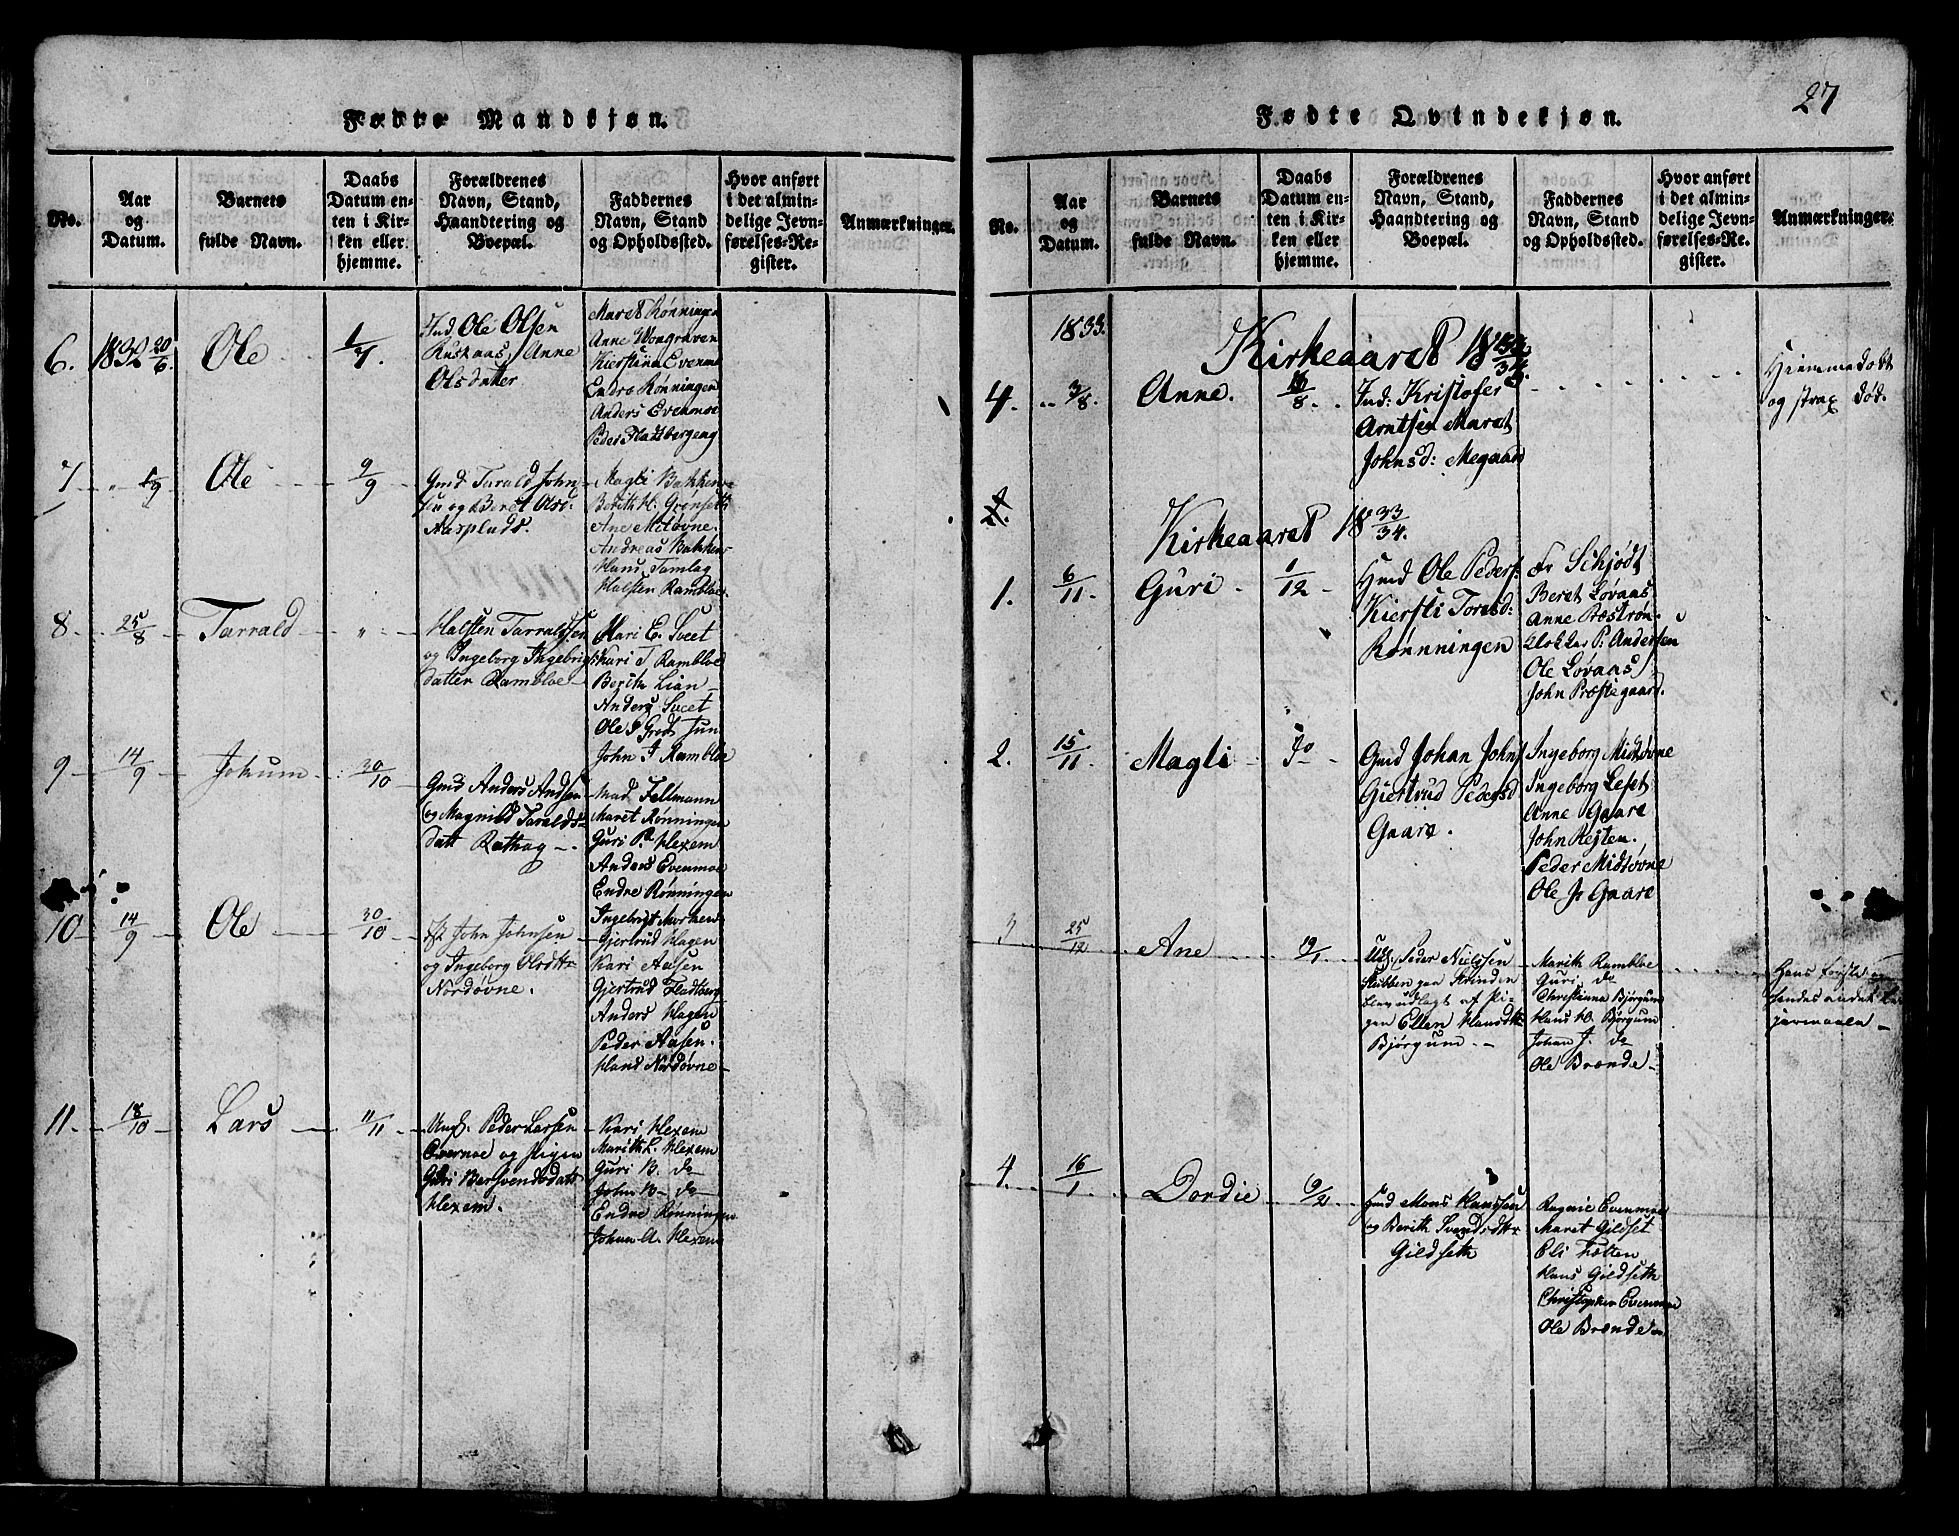 Fødte Mandkjøn.
No.
Aar
og
Datum.
Barnets
fulde Navn.
Daabs
Datum en-
ten i Kir-
ken eller
hjemme.
Forældrenes
Navn, Stand,
Haandtering og
Boepæl.
Faddernes
Navn, Stand
og Opholdssted.
Hvor anført
i det almin-
delige Jevn-
førelses-Re-
gister.
Anmærkninger.
6.
1832 20/6.
Ole
1/7.
Ind Ole Olsen
Ruskaas, Anne
Olsdatter
Maret Rønningen
Anne Vongraven
Kierstina Evenmo
Endre Rønningen
Anders Evenmoe
Peder Fladsbergeng
7
Ole
9/9
Gmd Tarald John-
sen og Beret Olsd:
Magli Bakken
Berith H. Grønseth
Ane Midtøvne.
Andreas Bakken
Hans Tamlag
Halsten Rambloe.
8.
25/8
Tarrald
"
Halsten Tarraldsen
og Ingeborg Ingebrigts
datter Rambloe
Mari E. Sveet
Kari T. Rambloe
Berith Lian
Anders Sveet
John T Rambloe
9
14/9
Johum
30/10
Gmd Anders Andsen
og Magnild Taralds-
datt Rathag
Mad. Fellmann
Maret Rønningen
Guri P. Hexem
Anders Evenmoe
Endre Rønningen
10
14/9
Ole
30/10
John Johnsen
og Ingeborg Olsdtr
Nordøvne.
Gjertrud Hagen
Kari Aasen
Gjertrud Fladberg
Anders Hagen
Peder Aasen.
Hans Nordøvne
11.
18/10
Lars
11/11
Ungk. Peder Larsen
Evenmoe og Pigen
Guri Bersvendsdatt
Hexem.
Kari Hexem
Marith L. Hexem
Guri B. do
John B. do
Endre Rønningen
Johan A. Hexem
Fødte Qvindekjøn.
27
No.
Aar
og
Datum.
Barnets
fulde Navn.
Daabs
Datum en-
ten i Kir-
ken eller
hjemme.
Forældrenes
Navn, Stand,
Haandtering og
Boepæl.
Faddernes
Navn, Stand
og Opholdssted.
Hvor anført
i det almin-
delige Jevn-
førelses-Re-
gister.
Anmærkninger.
1833.
Kirkeaaret
4.
3/8.
Anne.
Ind: Kristofer
Arntsen Maret
Johnsd: Megaard
Hjemmedøbt
og strax død.
Kirkeaaret 18 33/34.
1.
6/11
Guri
1/12
Hmd Ole Peders:
Kiersti Toresd:
Rønnningen
Fr Schjødt
Beret Løvaas
Anne Prestrøn
Klokker P. Andersen
Ole Løvaas
John Præstegaard.
2.
15/11
Magli
do
Gmd Johan Johns
Giertrud Pedersd
Gaare.
Ingeborg Midtøvne
Ingeborg Lefst
Anne Gaare
John Rejten.
Peder Midtøvne
Ole J. Gaare
3
25/12
Ane
19/1
Peder Nielssen
Stubben paa Strinden
blev udlagt af Pi-
gen Ellen Hansdtr
Bjørgum.
Marith Rambloe
Guri do
Christianna Bjørgum
Hans H. Bjørgum
Johan J. do
Ole Brænde
Hans første og
hendes andet Lei-
jermaal
4.
16/1
Dordie
9/2
Gmd Mons Hanssen
og Berith Svendsdtr
Gildseth
Ragnie Evenmoe
Maret Gildset
Eli Folten
Hans Gildseth
Christopher Evenmoe
Ole Brænde